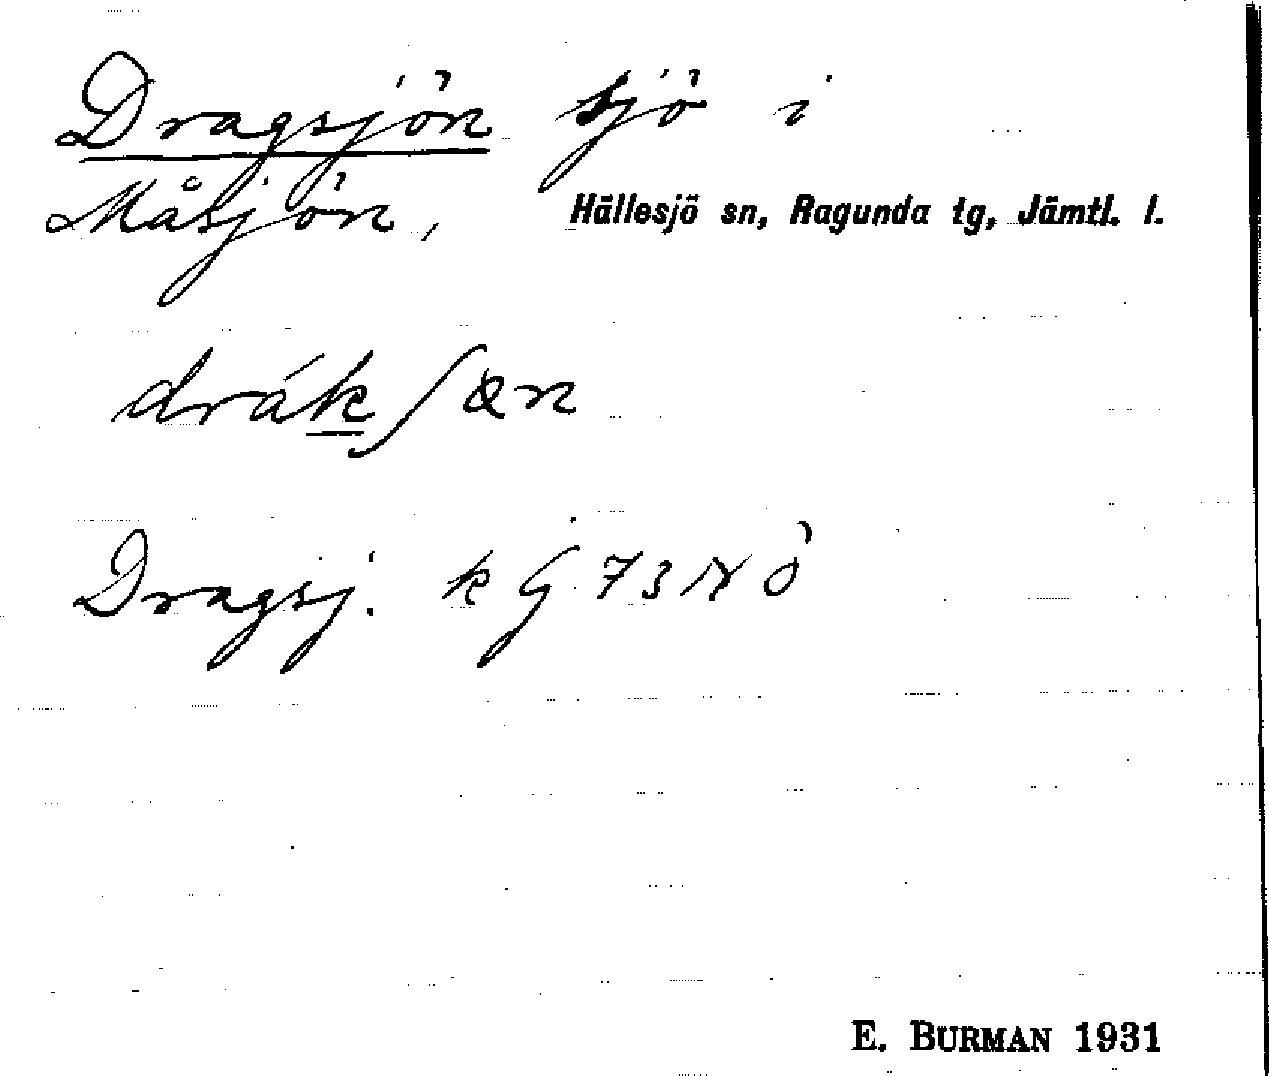 Dragsjön sjö i
Måsjön, Hällesjö sn, Ragunda tg, Jämtl. l.
drák∫æn
Dragsj. k G 73 NÖ
E. BURMAN 1931